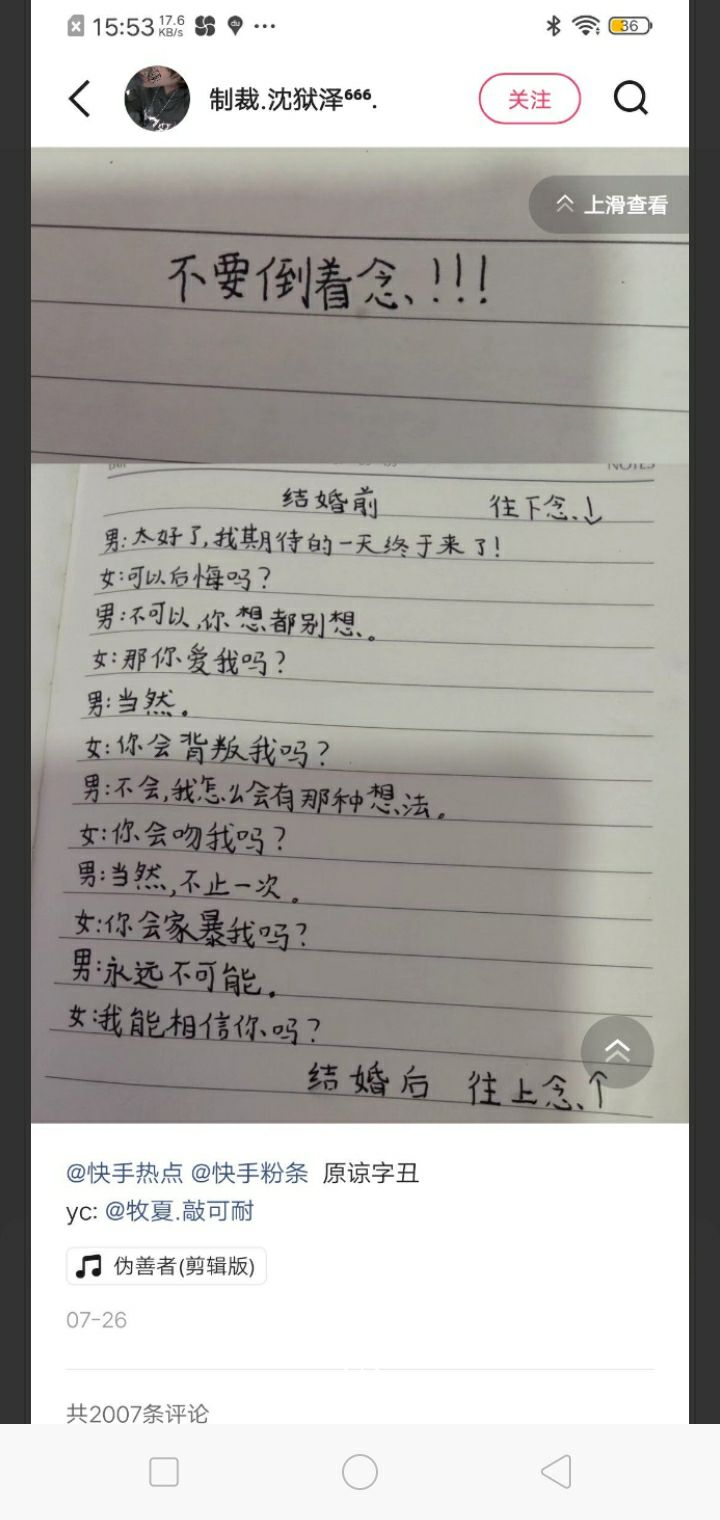 15:53 17.6 KB/s du ··· 36
制裁.沈狱泽⁶⁶⁶.
关注
上滑查看
不要倒着念!!!
NOTES
结婚前 往下念↓
男:太好了,我期待的一天终于来了!
女:可以后悔吗?
男:不可以,你想都别想。
女:那你爱我吗?
男:当然。
女:你会背叛我吗?
男:不会,我怎么会有那种想法。
女:你会吻我吗?
男:当然,不止一次。
女:你会家暴我吗?
男:永远不可能。
女:我能相信你吗?
结婚后 往上念↑
@快手热点 @快手粉条 原谅字丑
yc: @牧夏.敲可耐
伪善者(剪辑版)
07-26
共2007条评论